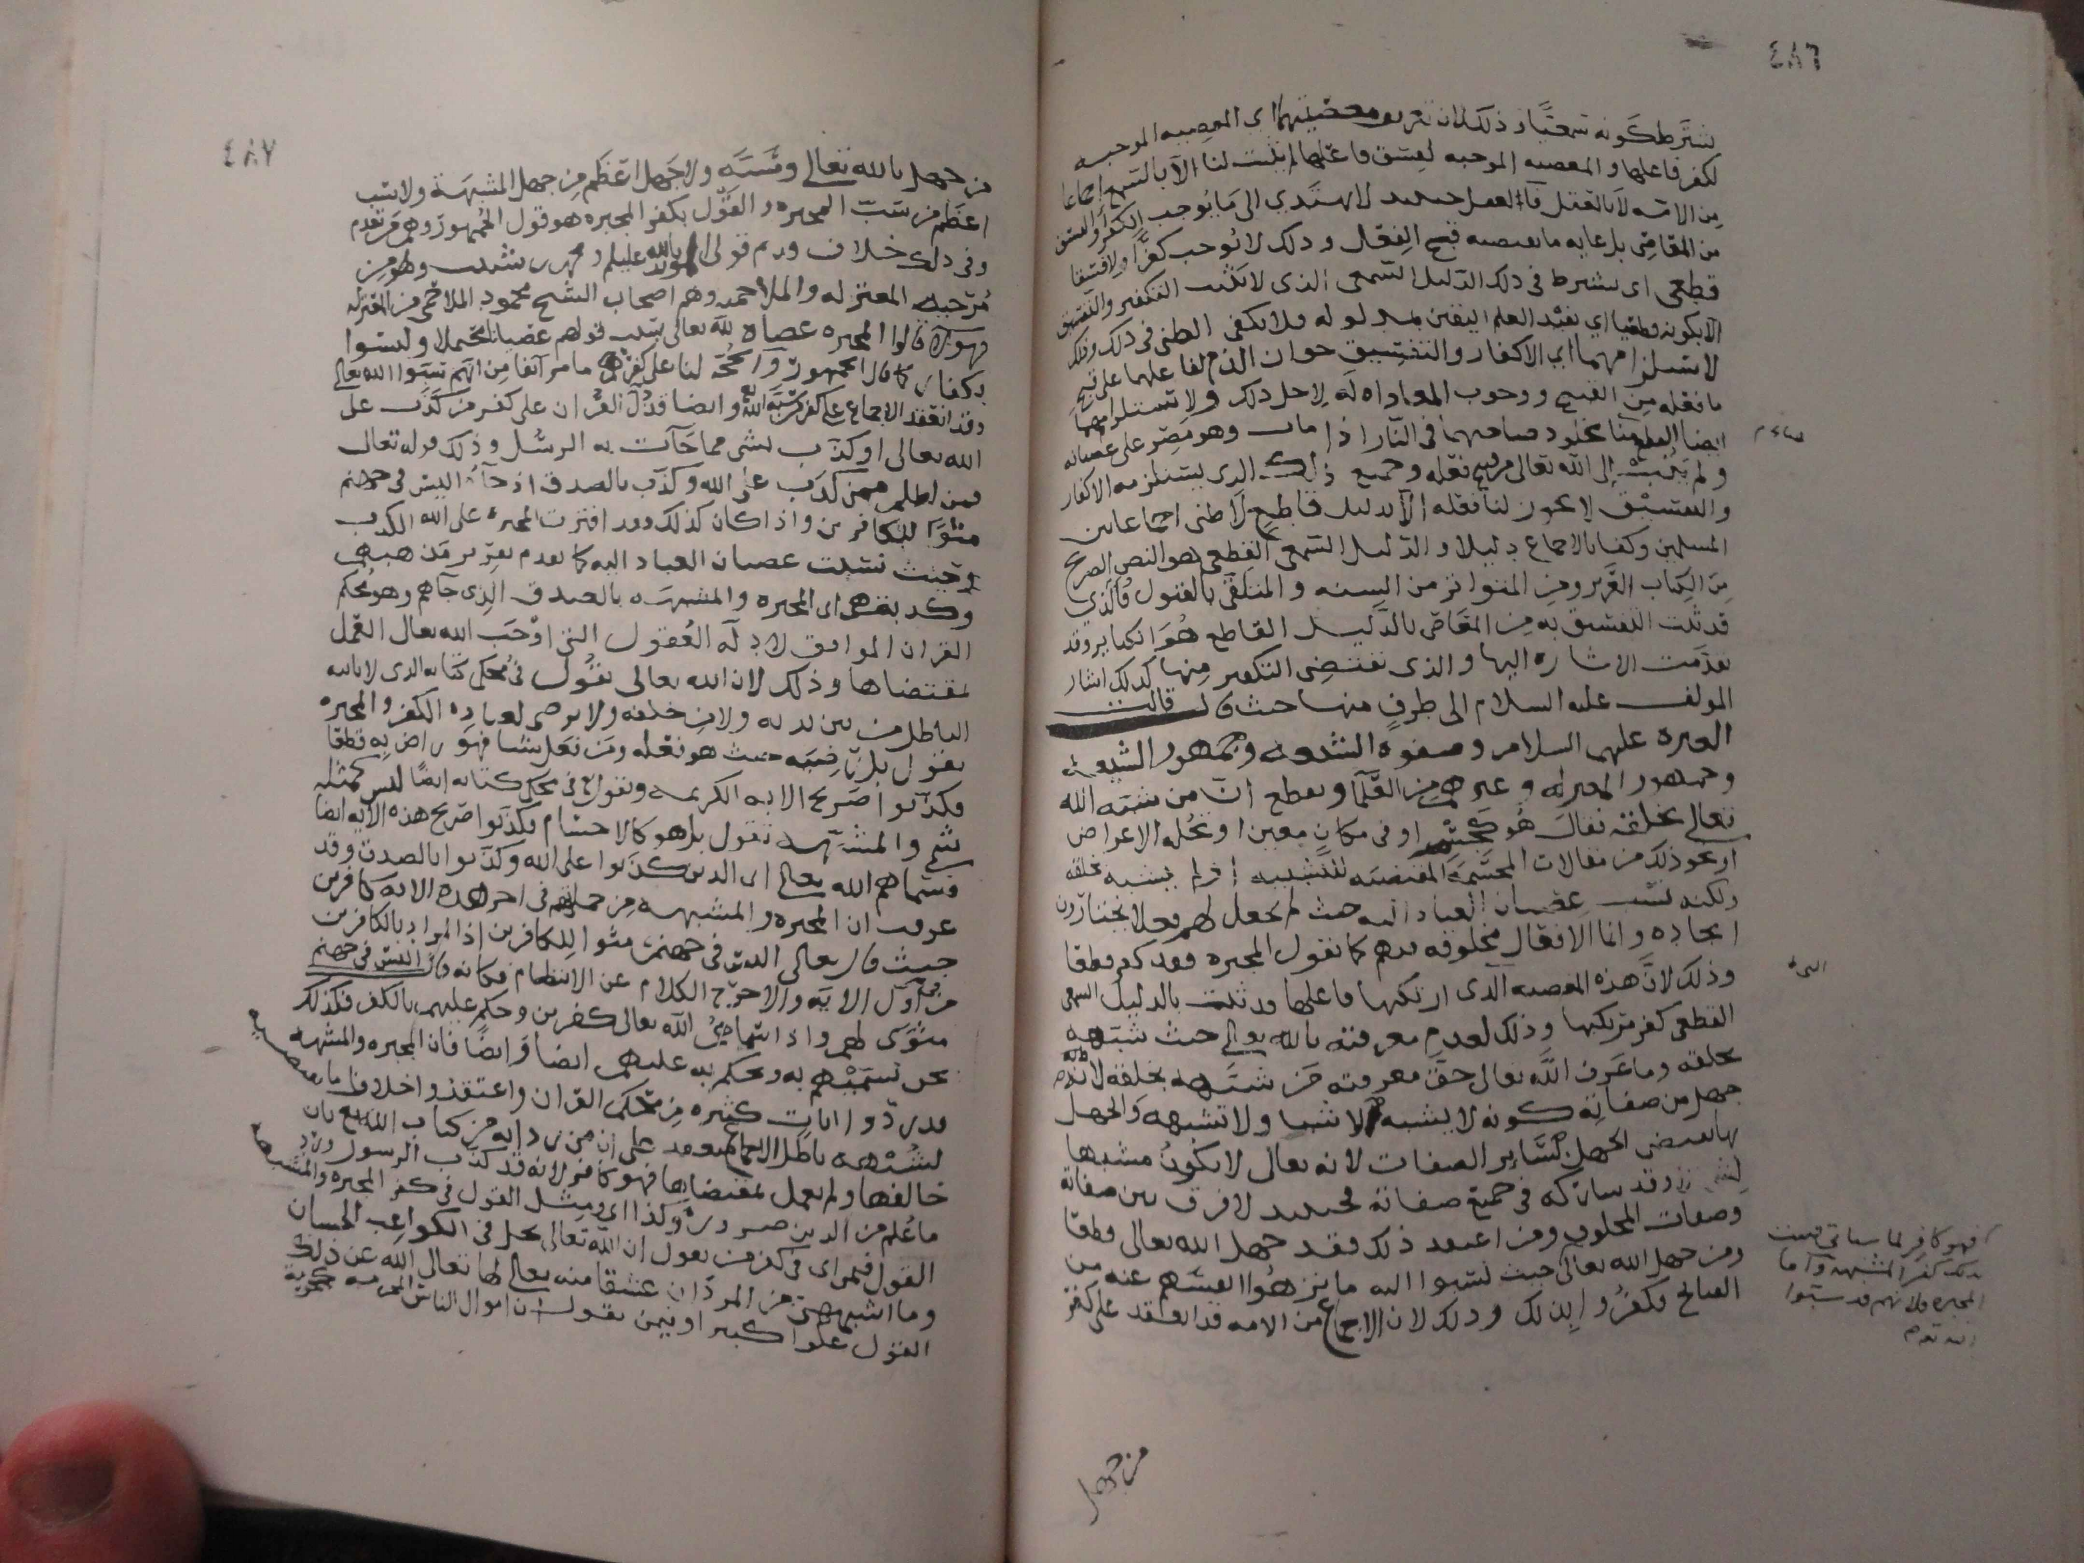 ٤٨٦
يشترط كونه سمعيا وذلك لان تعريف معصيتهما اي المعصيه الموجبه
لكفر فاعلها والمعصيه الموجبه لفسق فاعلها لم يثبت لنا الا بالسمع اجماعا
من الامه لا بالعقل فان العقل حينئذ لا يهتدي الى ما يوجب الكفر والفسق
من المعاصي بل غايه ما يقتضيه قبح الفعل وذلك لا يوجب كفرا ولا فسقا
قطعي اي يشترط في ذلك الدليل السمعي الذي لا يثبت التكفير والتفسيق
الا بكونه قطعيا اي يفيد العلم اليقين بمدلوله ولا يكفي الظن في ذلك وذلك
لاستلزامهما اي الاكفار والتفسيق جواز الذم لفاعلهما على قبح
ما فعله من القبيح ووجوب المعاداه له لاجل ذلك ولاستلزامهما
ايضا القطع منا بخلود صاحبهما في النار اذا مات وهو مصر على عصيانه
ولم يتب الى الله تعالى من قبيح فعله وجميع ذلك الذي يستلزمه الاكفار
والتفسيق لا يجوز لنا فعله الا بدليل قاطع لا ظني اجماعا بين
المسلمين وكفا بالاجماع دليلا والدليل السمعي القطعي هو النص الصريح
من الكتاب العزيز ومن المتواتر من السنه والمتلقى بالقبول فالذي
قد ثبت التفسيق به من المعاصي بالدليل القاطع هو الكبائر وقد
تقدمت الاشاره اليها والذي يقتضي التكفير منها كذلك اشار
المولف عليه السلام الى طرف منها حيث قال قالت
العتره عليهم السلام وصفوه الشيعه وجمهور الشيعه
وجمهور المعتزله وغيرهم من العلما ويقطع ان من شبه الله
تعالى بخلقه فقال هو كجسم او في مكان معين او تحله الاعراض
او نحو ذلك من مقالات المجسمة المقتضيه للتشبيه او لم يشبه بخلقه
ولكنه نسب عصيان العباد اليه حيث لم يجعل لهم فعلا يختارون
ايجاده وانما الافعال مخلوقه فيهم كما تقول المجبره فقد كفر قطعا
وذلك لان هذه المعصيه الذي ارتكبها فاعلها قد ثبت بالدليل السمعي
القطعي كفر مرتكبها وذلك لعدم معرفته بالله تعالى حيث شبهه
بخلقه وما عرف الله تعالى حق معرفته من شبهه بخلقه لانه
جهل من صفاته كونه لا يشبه الاشيا ولا تشبهه والجهل
بها يقتضي الجهل بسائر الصفات لانه تعالى لا يكون مشبها
وقد شاركه في جميع صفاته فحينئذ لا فرق بين صفاته
وصفات المخلوق ومن اعتقد ذلك فقد جهل الله تعالى قطعا
ومن جهل الله تعالى حيث نسبوا اليه ما ينزهوا انفسهم عنه من
القبائح فكفروا بذلك وذلك لان الاجماع من الامه قد انعقد على كفر
فهو كافر لما سياتي فثبت
بذلك كفر المشبهه واما
المجبره فلانهم قد سبوا
من جهل
٤٨٧
من جهل بالله تعالى وسبه ولا جهل اعظم من جهل المشبهة ولا سب
اعظم من سب المجبره والقول بكفر المجبره هو قول الجمهور وهم من تقدم
وفي ذلك خلاف قديم قولي المويد بالله عليلم ومحمد بن شبيب وهو من
مرجية المعتزله والملاحميه وهم اصحاب الشيخ محمود الملاحمي من المعتزله
فهولاء قالوا المجبره عصاه لله تعالى بسبب قولهم عصيانا محتملا وليسوا
بكفار كما قال الجمهور والحجة لنا على كفرهم ما مر آنفا من انهم سبوا الله تعالى
وقد انعقد الاجماع على كفر من سبه الله وايضا قد دل القران على كفر من كذب على
الله تعالى او كذب بشي مما جآت به الرسل وذلك قوله تعالى
فمن اظلم ممن كذب على الله وكذب بالصدق اذ جآه اليس في جهنم
مثوا للكافرين واذا كان كذلك وقد افترت المجبره على الله الكذب
حيث نسبت عصيان العباد اليه كما تقدم تقرير مذهبهم
وكذبت هي اي المجبره والمشبهه بالصدق الذي جاهم وهو محكم
القران الموافق لادلة العقول التي اوجب الله تعالى العمل
بمقتضاها وذلك لان الله تعالى يقول في محكم كتابه الذي لا ياتيه
الباطل من بين يديه ولا من خلفه ولا يرضى لعباده الكفر والمجبره
تقول بل رضيه حيث هو فعله ومن فعل شيا فهو راض به قطعا
فكذبوا صريح الايه الكريمه ويقول في محكم كتابه ايضا ليس كمثله
شي والمشبهه تقول بل هو كالاجسام فكذبوا صريح هذه الآيه ايضا
فسماهم الله تعالى اي الذين كذبوا على الله وكذبوا بالصدق وقد
عرفت ان المجبره والمشبهه من جملتهم في اخر هذه الايه كافرين
حيث قال تعالى اليس في جهنم مثوا للكافرين اذ المراد بالكافرين
من في اول الايه والا خرج الكلام عن الانتظام فكانه قال اليس في جهنم
مثوى لهم واذا سماهم الله تعالى كافرين وحكم عليهم بالكفر فكذلك
نحن نسميهم به ونحكم به عليهم ايضا وايضا فان المجبره والمشبهه
قد ردوا ايات كثيره من محكم القران واعتقدوا خلاف ما تقتضيه
لشبههم باطله الاجماع منعقد على ان من رد ايه من كتاب الله تعالى بان
خالفها ولم يعمل بمقتضاها فهو كافر لانه قد كذب الرسول ورد
ما علم من الدين ضروره وكذا اي ومثل القول في كفر المجبره والمشبهه
القول فيمن اي في كفر من يقول ان الله تعالى يحل في الكواعب الحسان
وما اشبههن من المردان عشقا منه تعالى لها تعالى الله عن ذلك
القول علوا كبيرا او فيمن يقول ان اموال الناس المحرمه